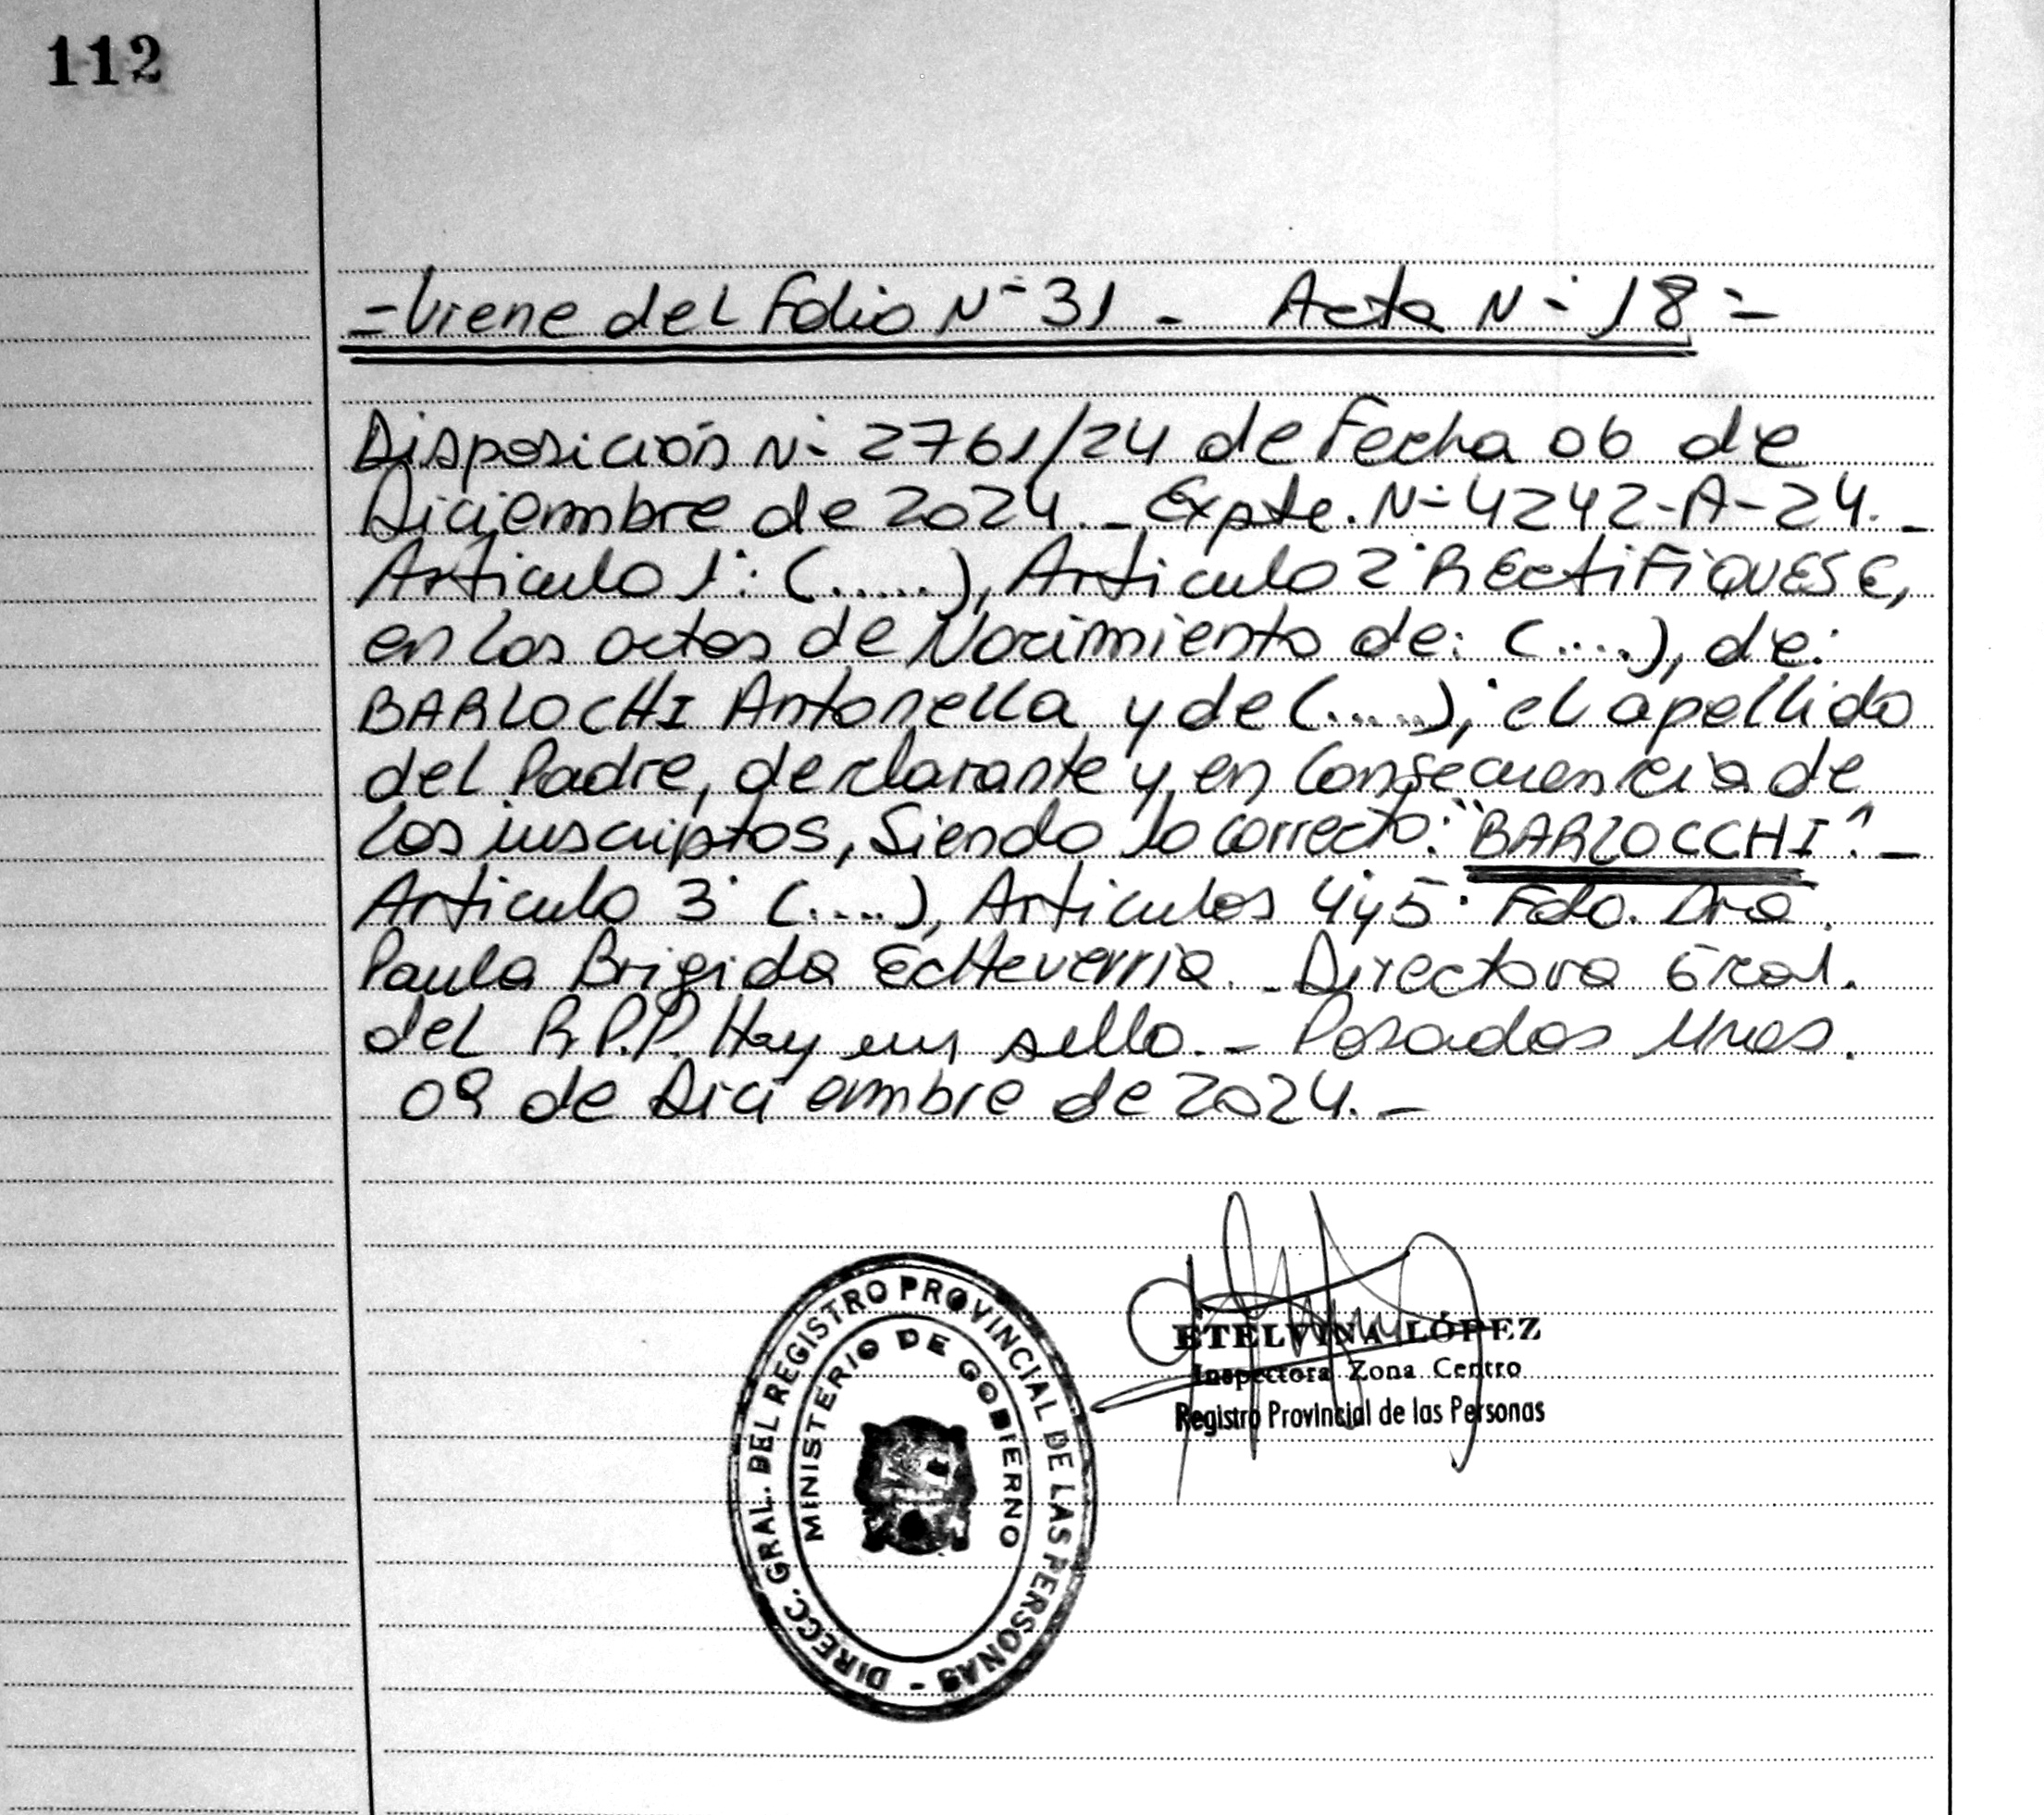 112
=Viene del Folio N° 31 - Acta N° 18=
Disposición N° 2761/24 de Fecha 06 de
Diciembre de 2024.- Expte. N° 4242-A-24.-
Articulo 1°: (......), Articulo 2° RECTIFIQUESE,
en los actos de Nacimiento de: (....), de:
BARLOCHI Antonella y de (.....), el apellido
del Padre, declarante y en Consecuencia de
los inscriptos, Siendo lo correcto: "BARLOCCHI".-
Articulo 3° (....), Articulos 4y5° Fdo. Dra.
Paula Brigida Echeverria.- Directora Gral.
del R.P.P. Hay un sello.- Posadas Mnes.
09 de Diciembre de 2024.-
DIRECC. GRAL. DEL REGISTRO PROVINCIAL DE LAS PERSONAS -
MINISTERIO DE GOBIERNO
ETELVINA LÓPEZ
Inspectora Zona Centro
Registro Provincial de las Personas